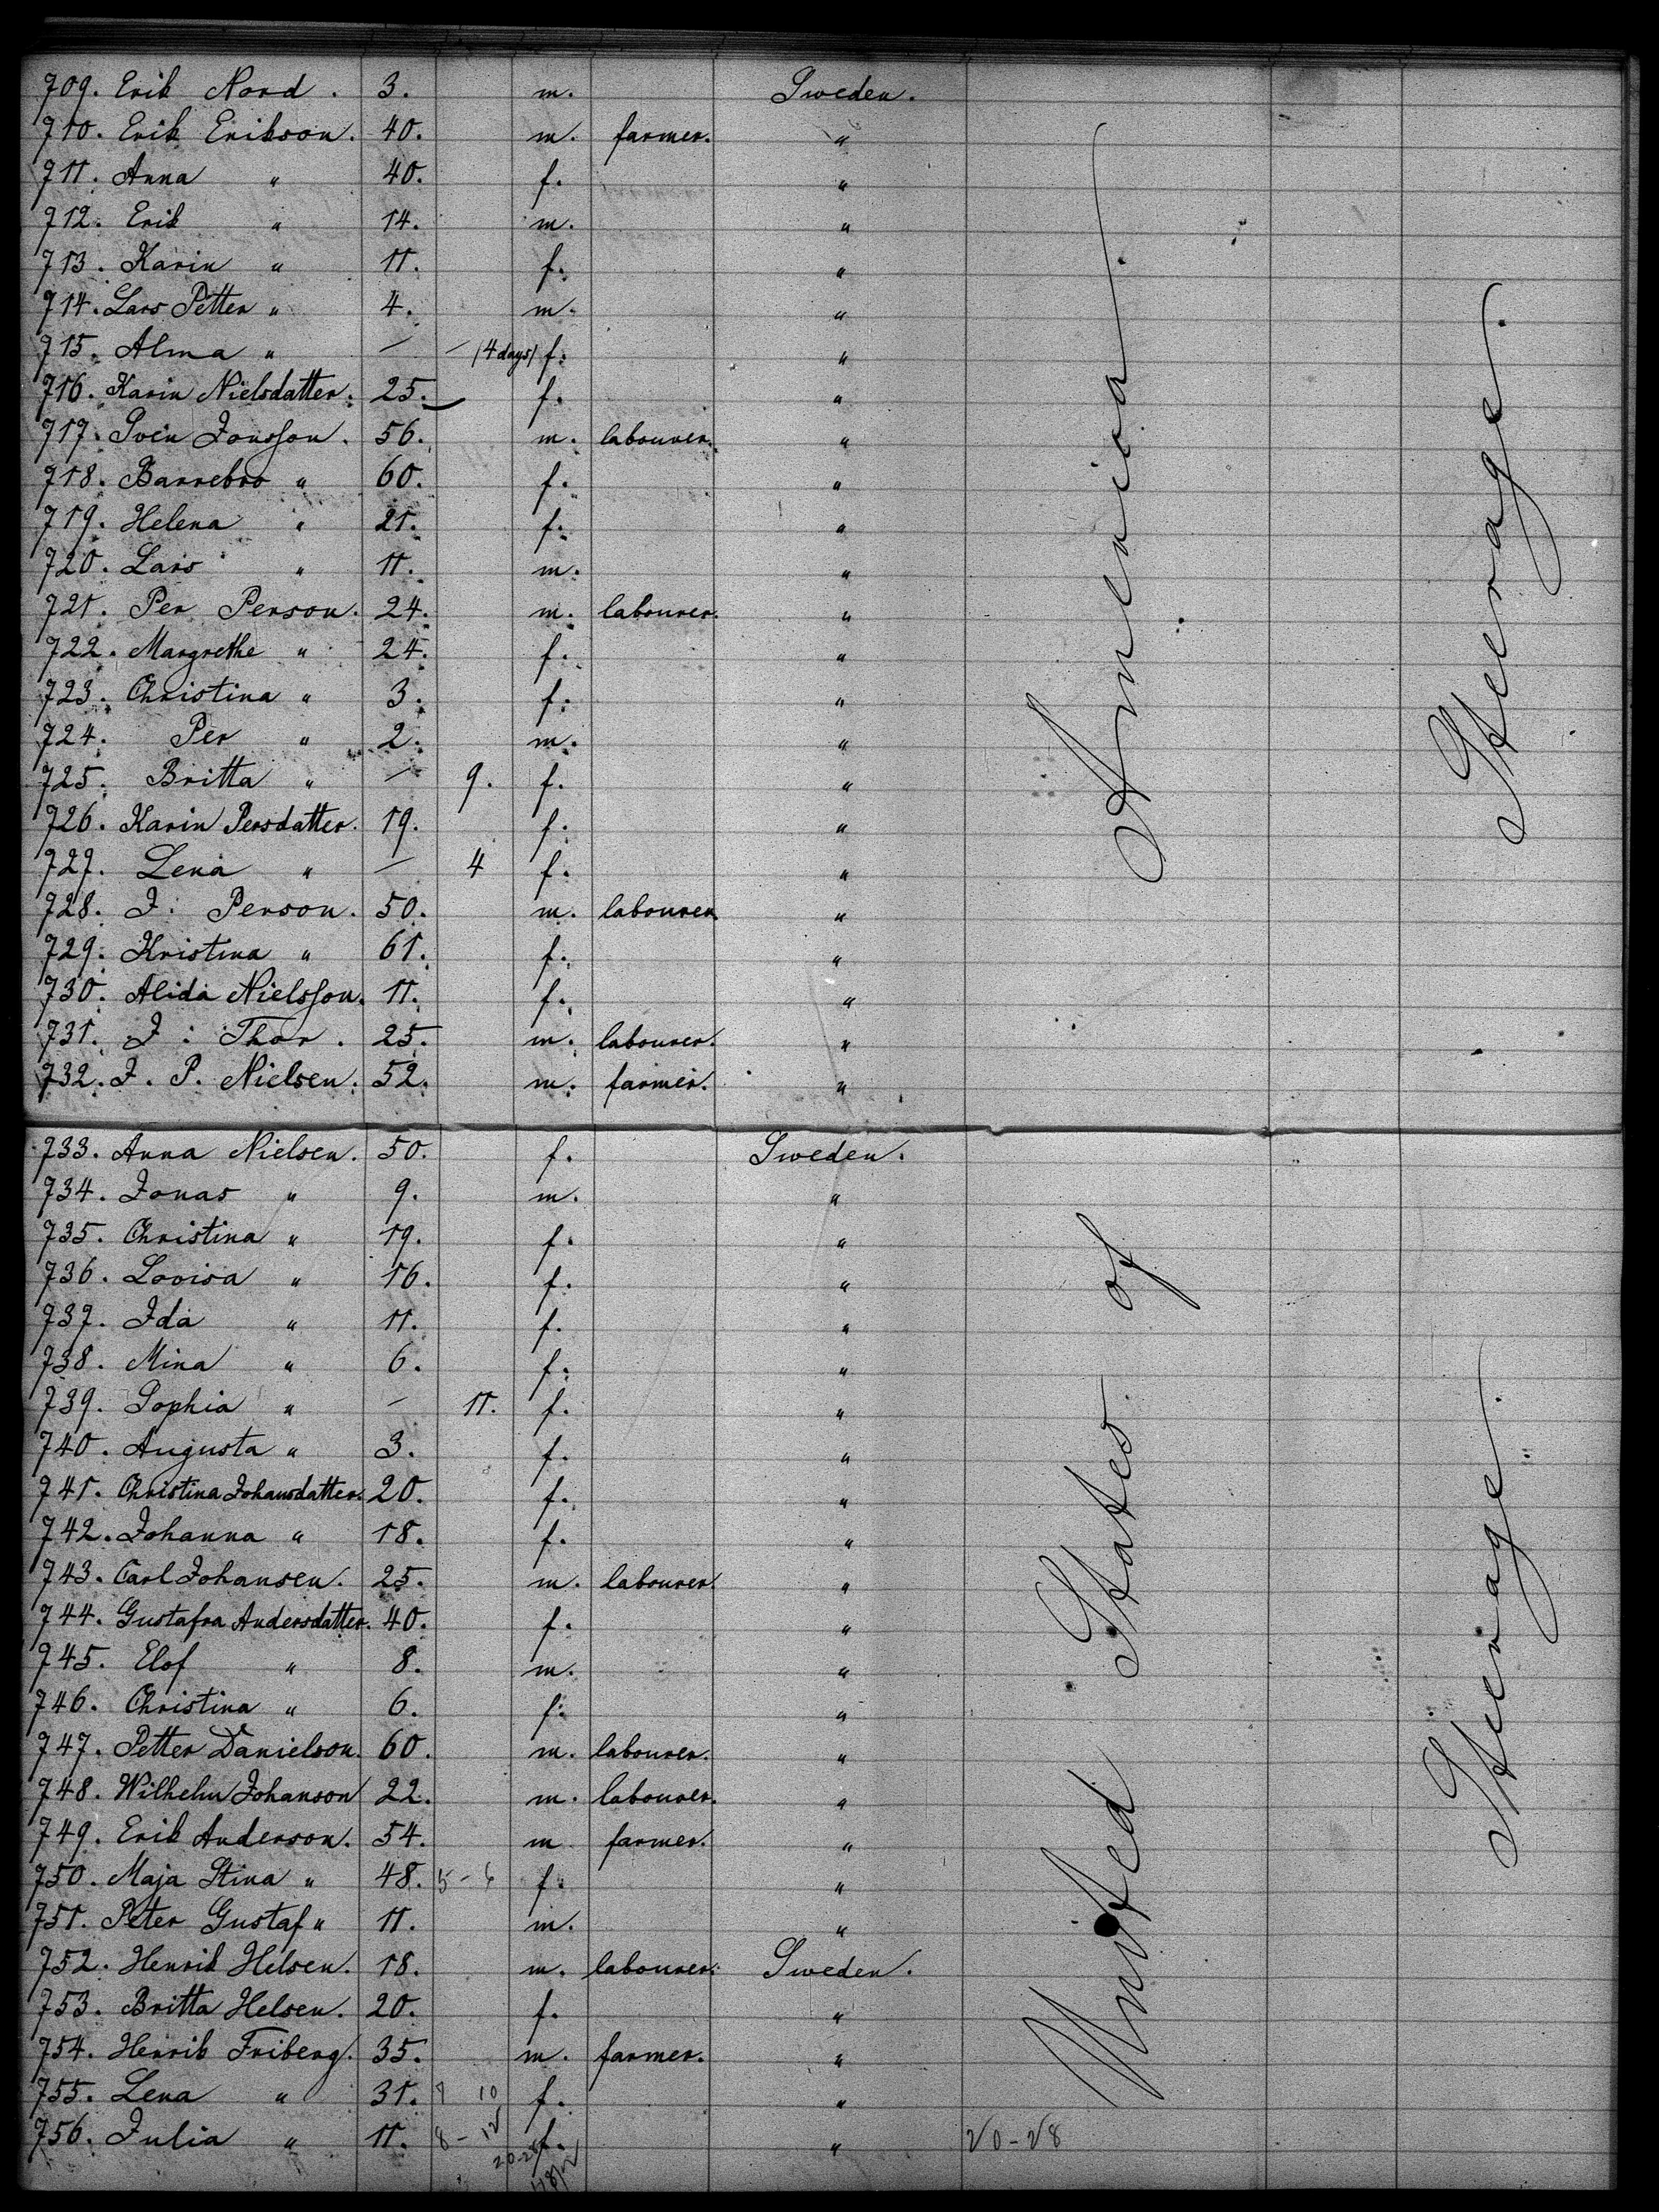 709. Erik Nord. 3. m. Sweden.
710. Erik Erikson. 40. m. farmer. "
711. Anna " 40. f. "
712. Erik " 14. m. "
713. Karin " 11. f. "
714. Lars Petter " 4. m. "
715. Alma " — — (4 days) f. "
716. Karin Nielsdatter. 25. f. "
717. Sven Jonsson. 56. m. labourer. "
718. Barrebro " 60. f. "
719. Helena " 21. f. "
720. Lars " 11. m. "
721. Per Person. 24. m. labourer. "
722. Margrethe " 24. f. "
723. Christina " 3. f. "
724. Per " 2. m. "
725. Britta " — 9. f. "
726. Karin Persdatter. 19. f. "
727. Lena " — 4 f. "
728. J: Person. 50. m. labourer. "
729. Kristina " 61. f. "
730. Alida Nielsson. 11. f. "
731. J: Thor. 25. m. labourer. "
732. J. P. Nielsen. 52. m. farmer. "
733. Anna Nielsen. 50. f. Sweden.
734. Jonas " 9. m. "
735. Christina " 19. f. "
736. Lovisa " 16. f. "
737. Ida " 11. f. "
738. Mina " 6. f. "
739. Sophia " — 11. f. "
740. Augusta " 3. f. "
741. Christina Johansdatter. 20. f. "
742. Johanna " 18. f. "
743. Carl Johansen. 25. m. labourer. "
744. Gustafva Andersdatter. 40. f. "
745. Elof " 8. m. "
746. Christina " 6. f. "
747. Petter Danielson. 60. m. labourer. "
748. Wilhelm Johanson 22. m. labourer. "
749. Erik Anderson. 54. m farmer. "
750. Maja Stina " 48. 5 - 6 f. "
751. Peter Gustaf " 11. m. "
752. Henrik Helsen. 18. m. labourer. Sweden.
753. Britta Helsen. 20. f. "
754. Henrik Friberg. 35. m. farmer. "
755. Lena " 31. 7 10 f. "
756. Julia " 11. 8 - 12 f. " 20-28
20-28
United States of America.
Steerage.
Steerage.